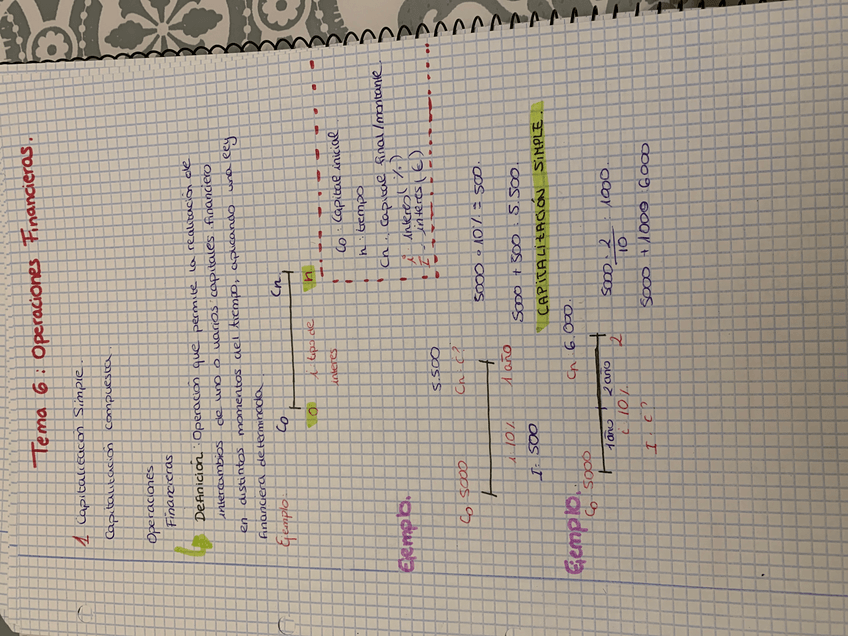 Tema 6: Operaciones Financieras.
1 Capitalización Simple.
Capitalización compuesta.
Operaciones
Financieras
Definición: Operación que permite la realización de
intercambios de uno o varios capitales financiero
en distintos momentos del tiempo, aplicando una ley
financiera determinada.
Ejemplo.
Co Cn
0 i tipo de n
interes
Co: Capital inicial
n: tiempo
Cn: capital final/montante.
i: interes (%)
I: interes (€)
Ejemplo.
5.500
Co 5000 Cn ¿?
i 10% 1 año
I: 500
5000 · 10% = 500.
5000 + 500: 5.500.
CAPITALIZACIÓN SIMPLE.
Ejemplo.
Co 5000 Cn 6.000.
1año 2año
i 10% 2
I ¿?
5000 · 2 : 1000
10
5000 + 1000 6000